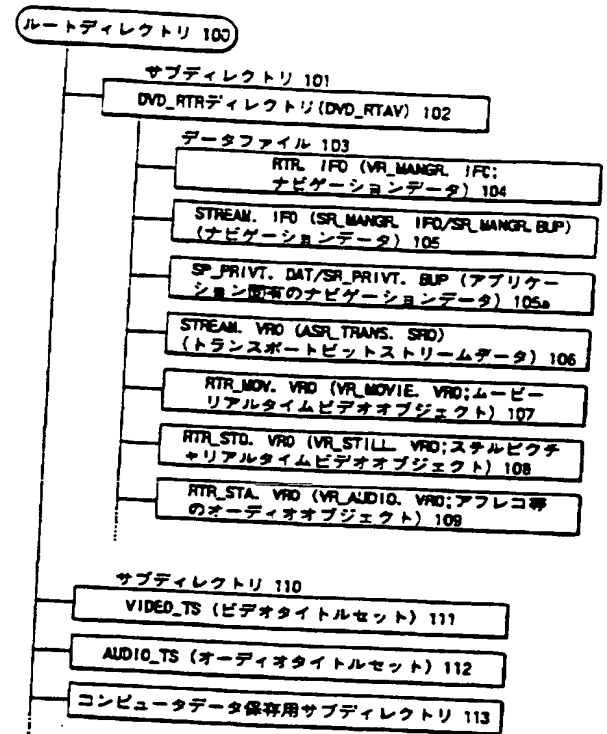 ルートディレクトリ 100
サブディレクトリ 101
DVD_RTRディレクトリ(DVD_RTAV) 102
データファイル 103
RTR. IFO (VR_MANGR. IFO;
ナビゲーションデータ) 104
STREAM. IFO (SR_MANGR. IFO/SR_MANGR. BUP)
(ナビゲーションデータ) 105
SP_PRIVT. DAT/SR_PRIVT. BUP (アプリケー
ション固有のナビゲーションデータ) 105a
STREAM. VRO (ASR_TRANS. SRO)
(トランスポートビットストリームデータ) 106
RTR_MOV. VRO (VR_MOVIE. VRO;ムービー
リアルタイムビデオオブジェクト) 107
RTR_STO. VRO (VR_STILL. VRO;スチルピクチ
ャリアルタイムビデオオブジェクト) 108
RTR_STA. VRO (VR_AUDIO. VRO;アフレコ等
のオーディオオブジェクト) 109
サブディレクトリ 110
VIDEO_TS (ビデオタイトルセット) 111
AUDIO_TS (オーディオタイトルセット) 112
コンピュータデータ保存用サブディレクトリ 113